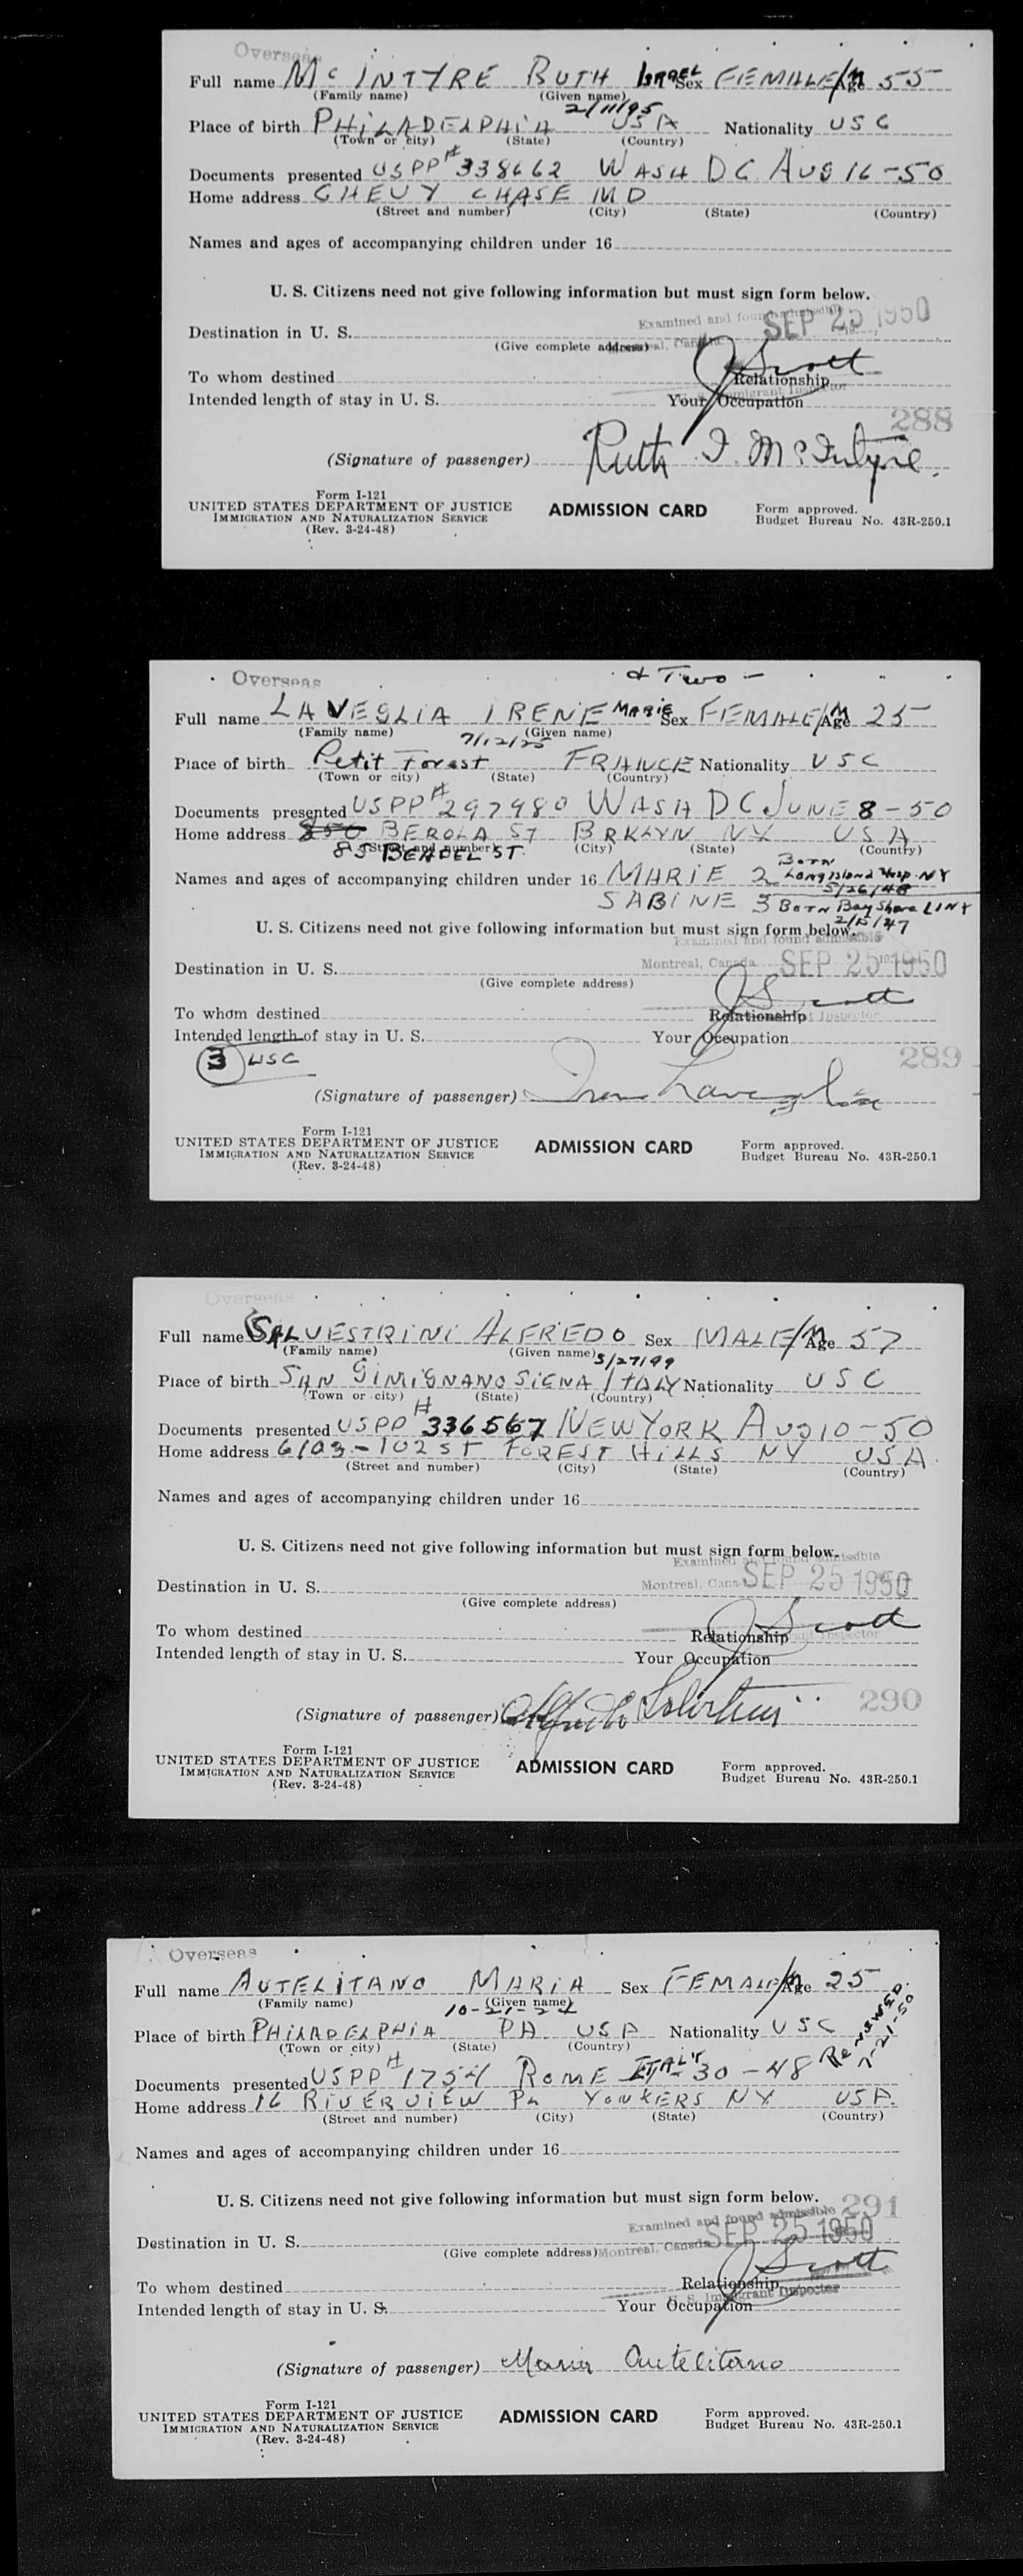 Overseas
Full name MC INTYRE RUTH ISRAEL Sex FEMALE/M Age 55
(Family name) (Given name)
2/11/95
Place of birth PHILADELPHIA USA Nationality USC
(Town or city) (State) (Country)
Documents presented USPP # 338662 WASH DC AUG 16-50
Home address CHEVY CHASE MD
(Street and number) (City) (State) (Country)
Names and ages of accompanying children under 16
U. S. Citizens need not give following information but must sign form below.
Examined and found admissible
SEP 25 1950
Destination in U. S.
(Give complete address) Montreal, Canada
J Scott
To whom destined Relationship
Immigrant Inspector
Intended length of stay in U. S. Your Occupation
288
(Signature of passenger) Ruth I. McIntyre.
Form I-121
UNITED STATES DEPARTMENT OF JUSTICE
IMMIGRATION AND NATURALIZATION SERVICE
(Rev. 3-24-48)
ADMISSION CARD
Form approved.
Budget Bureau No. 43R-250.1
Overseas
& Two -
Full name LAVEGLIA IRENE MARIE Sex FEMALE/M Age 25
(Family name) (Given name)
7/12/25
Place of birth Petit Forest FRANCE Nationality USC
(Town or city) (State) (Country)
Documents presented USPP # 297980 WASH DC JUNE 8-50
Home address 850 BEROLA ST BRKLYN NY USA
(Street and number) (City) (State) (Country)
85 BEADEL ST.
Names and ages of accompanying children under 16 MARIE 2 Born Long Island Hosp. NY 5/26/48
SABINE 3 Born Bay Shore LI NY 2/15/47
U. S. Citizens need not give following information but must sign form below.
Examined and found admissible
Montreal, Canada SEP 25 1950
Destination in U. S.
(Give complete address)
J Scott
To whom destined Relationship
Immigrant Inspector
Intended length of stay in U. S. Your Occupation
3 USC
289
(Signature of passenger) Irene Laveglia
Form I-121
UNITED STATES DEPARTMENT OF JUSTICE
IMMIGRATION AND NATURALIZATION SERVICE
(Rev. 3-24-48)
ADMISSION CARD
Form approved.
Budget Bureau No. 43R-250.1
Overseas
Full name SALVESTRINI ALFREDO Sex MALE/M Age 57
(Family name) (Given name)
Place of birth SAN GIMIGNANO SIENA ITALY Nationality USC
(Town or city) (State) (Country)
Documents presented USPP # 336567 NEW YORK AUG 10-50
Home address 6103-102 ST FOREST HILLS NY USA.
(Street and number) (City) (State) (Country)
Names and ages of accompanying children under 16
U. S. Citizens need not give following information but must sign form below.
Examined and found admissible
Montreal, Canada SEP 25 1950
Destination in U. S.
(Give complete address)
J Scott
To whom destined Relationship
Immigrant Inspector
Intended length of stay in U. S. Your Occupation
290
(Signature of passenger) Alfredo Salvestrini
Form I-121
UNITED STATES DEPARTMENT OF JUSTICE
IMMIGRATION AND NATURALIZATION SERVICE
(Rev. 3-24-48)
ADMISSION CARD
Form approved.
Budget Bureau No. 43R-250.1
Overseas
Full name AUTELITANO MARIA Sex FEMALE/M Age 25
(Family name) (Given name)
Place of birth PHILADELPHIA PA USA Nationality USC
(Town or city) (State) (Country)
RENEWED. 7-21-50
Documents presented USPP # 1754 ROME ITALY 30-48
Home address 16 RIVERVIEW PL YONKERS NY USA.
(Street and number) (City) (State) (Country)
Names and ages of accompanying children under 16
U. S. Citizens need not give following information but must sign form below.
291
Examined and found admissible
Montreal, Canada SEP 25 1950
Destination in U. S.
(Give complete address)
J Scott
To whom destined Relationship
U. S. Immigrant Inspector
Intended length of stay in U. S. Your Occupation
(Signature of passenger) Maria Autelitano
Form I-121
UNITED STATES DEPARTMENT OF JUSTICE
IMMIGRATION AND NATURALIZATION SERVICE
(Rev. 3-24-48)
ADMISSION CARD
Form approved.
Budget Bureau No. 43R-250.1